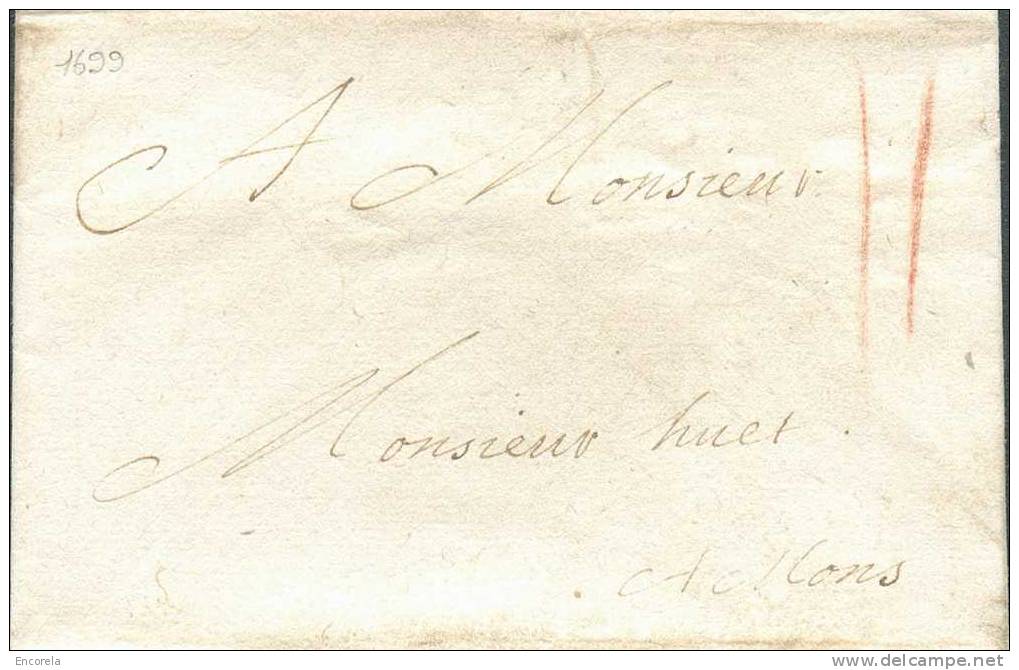 1699
A Monsieur
Monsieur huet
A Mons
Encorela
www.delcampe.net